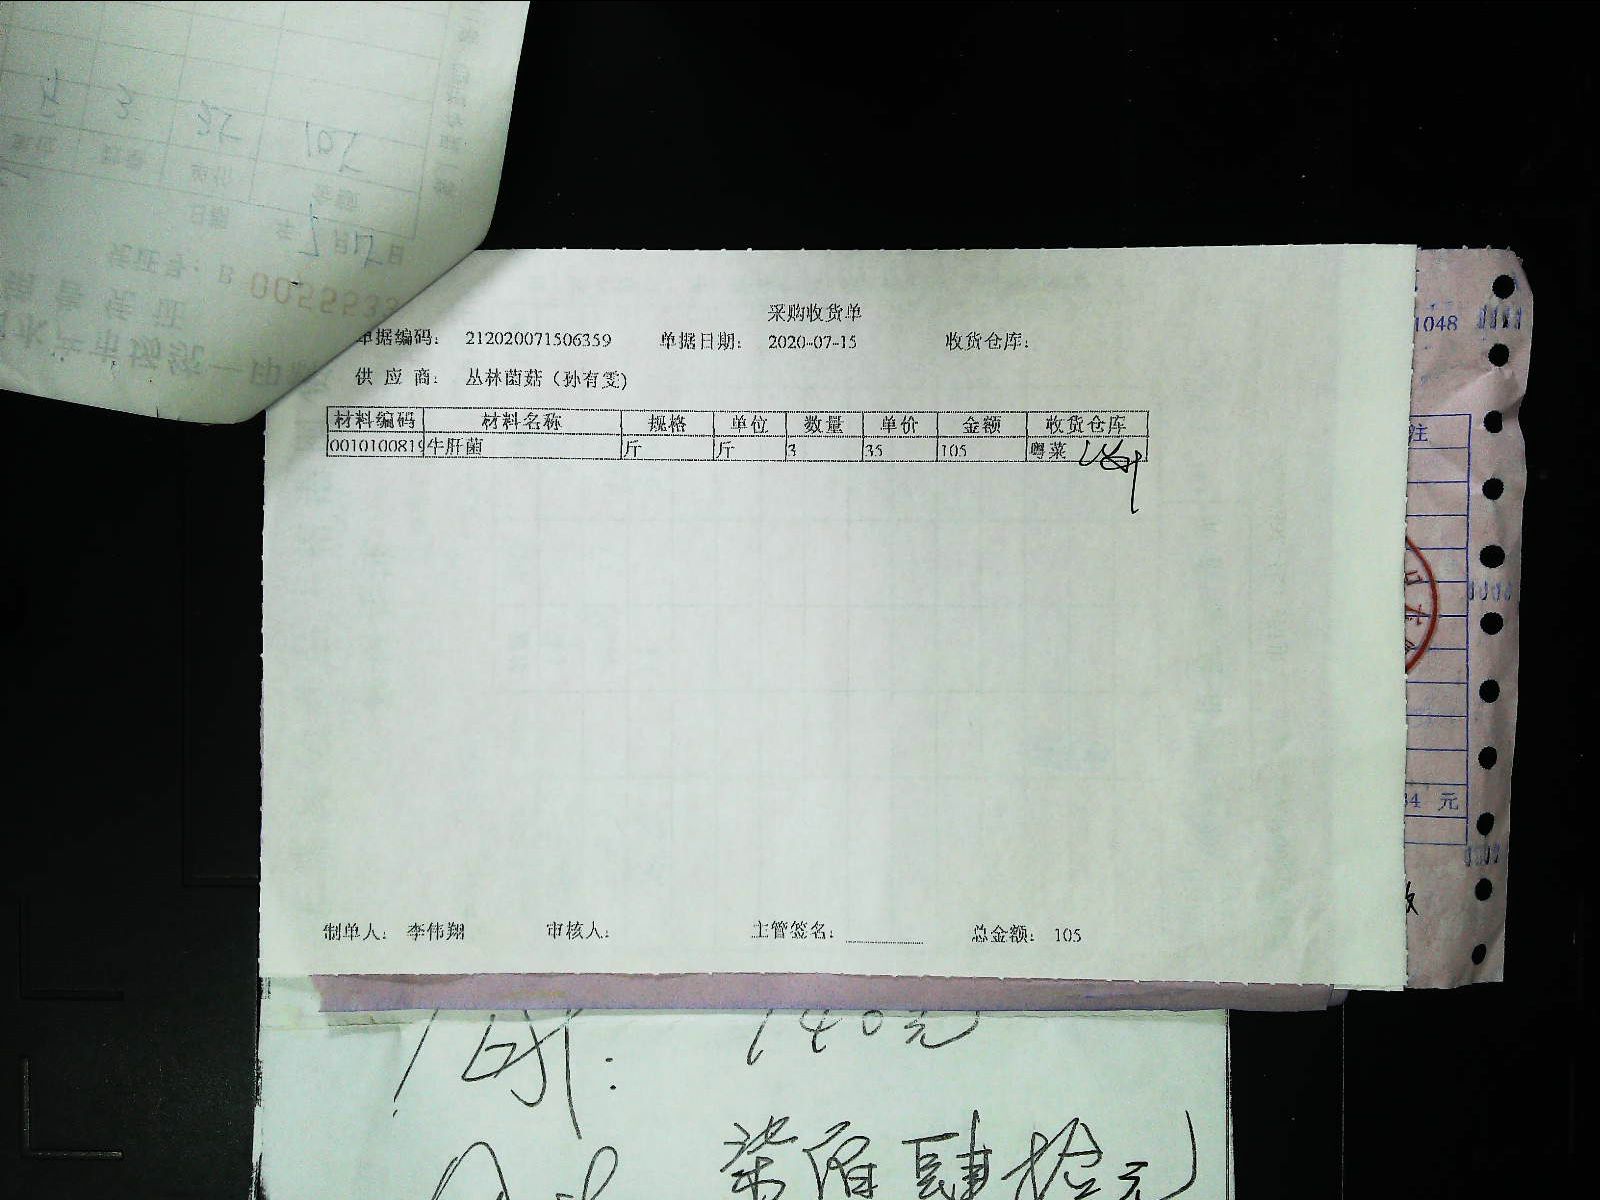 采购收货单
单据编码： 212020071506359 单据日期： 2020-07-15 收货仓库：
供应商： 丛林菌菇（孙有雯）
材料编码 材料名称 规格 单位 数量 单价 金额 收货仓库
0010100819 牛肝菌 斤 斤 3 35 105 粤菜
制单人： 李伟翔 审核人： 主管签名： 总金额： 105
1048
注
34 元
140元
柒佰肆拾元